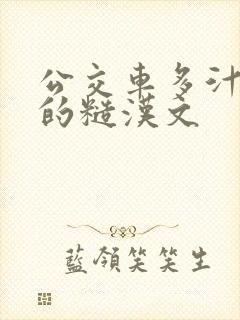 公交車多汁
的糙漢文
藍領笑笑生